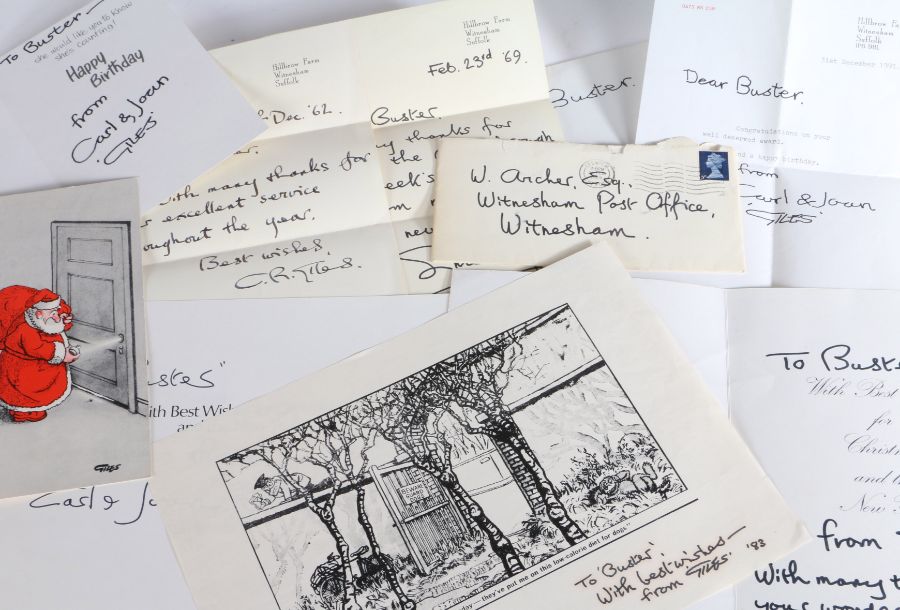 To Buster—
she would like you to know
she's counting!
Happy
Birthday
from
Carl & Joan
GILES.
Hillbrow Farm
Witnesham
Suffolk
Dec. '62.
with many thanks for
excellent service
oughout the year.
Best wishes
C.R. Giles.
Hillbrow Farm
Witnesham
Suffolk
Feb. 23rd '69.
Buster.
thanks for
the
eek's
new
Buster.
W. Archer, Esq.,
Witnesham Post Office,
Witnesham.
Hillbrow Farm
Witnesham
Suffolk
IP6 9HL
31st December 1991
Dear Buster.
Congratulations on your
well deserved award.
and a happy birthday.
from
Carl & Joan
GILES.
GILES
uster"
ith Best Wish
an
Carl & Jo
day — they've put me on this low-calorie diet for dogs"
To 'Buster'.
With best wishes—
from GILES. '83
To Buste
With Best
for
Christm
and
New
from
With many